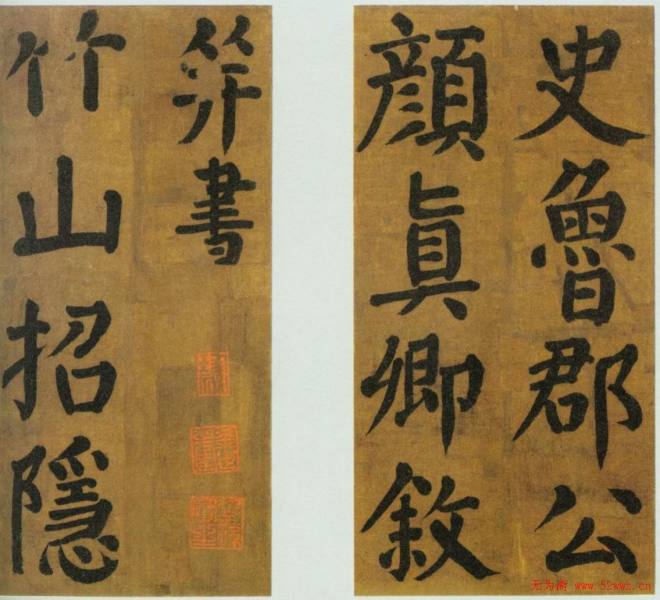 史魯郡公
顏真卿敘
并書
竹山招隱
无为斋 www.52wwz.cn